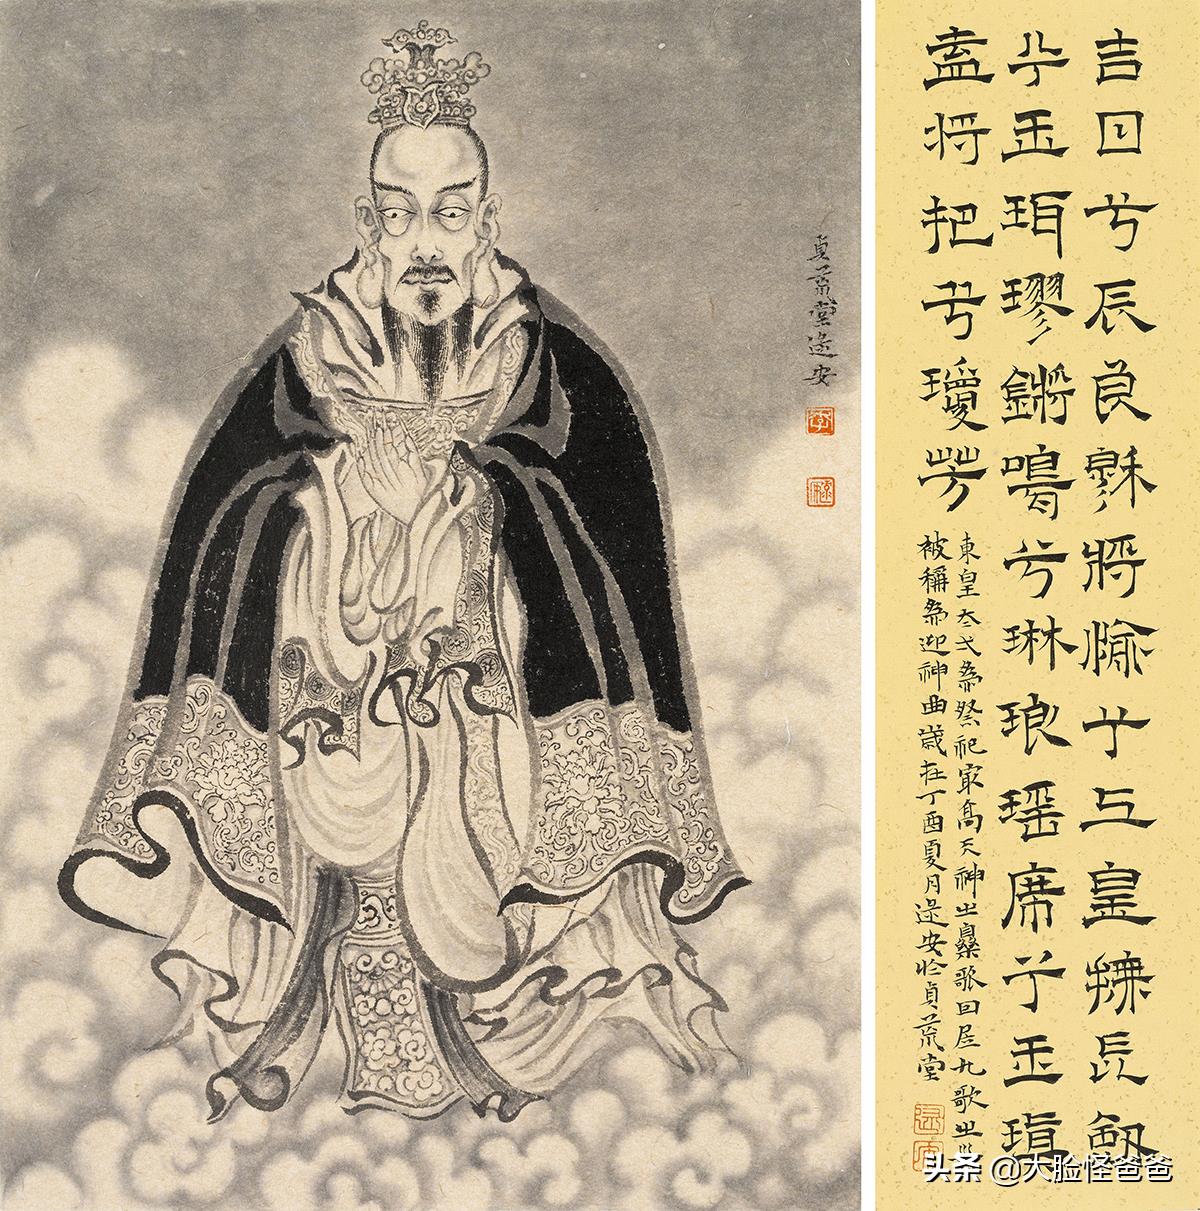 吉日兮辰良穆將愉兮上皇撫長劍
兮玉珥璆鏘鳴兮琳琅瑶席兮玉瑱
盍將把兮瓊芳
東皇太弌為祭祀最高天神之樂歌因居九歌之
被稱為迎神曲歲在丁酉夏月逯安於貞荒堂
貞荒堂逯安
头条 @大脸怪爸爸